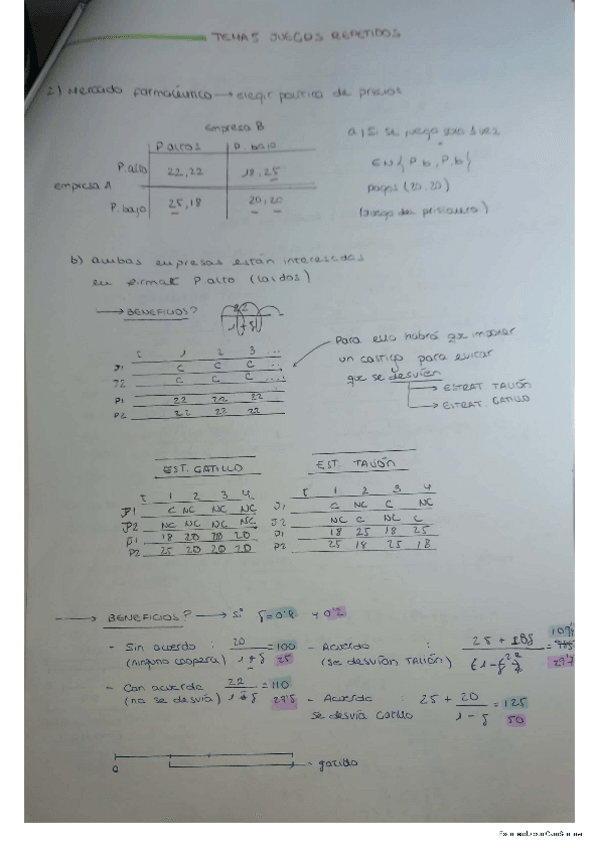 TEMA 5 JUEGOS REPETIDOS
2) Mercado farmacéutico → elegir política de precios
Empresa B
P. altos P. bajo
P. alto 22, 22 18, 25
empresa A
P. bajo 25, 18 20, 20
a) Si se juega 1 vez
EN { P.b, P.b }
pagos (20, 20)
(Juego del prisionero)
b) Ambas empresas están interesadas
en P alto
→ BENEFICIOS?
t 1 2 3 ...
J1 C C C ...
J2 C C C ...
P1 22 22 22
P2 22 22 22
Para ello habrá que imponer
un castigo para evitar
que se desvíen
→ ESTRAT. TALIÓN
→ ESTRAT. GATILLO
EST. GATILLO
t 1 2 3 4
J1 C NC NC NC
J2 NC NC NC NC
P1 18 20 20 20
P2 25 20 20 20
EST. TALIÓN
t 1 2 3 4
J1 C NC C NC
J2 NC C NC C
P1 18 25 18 25
P2 25 18 25 18
→ BENEFICIOS? → Si δ=0'8 y 0'2
- Sin acuerdo : 20 / 1-δ = 100
(ninguno coopera) 25
- Acuerdo : 25 + 18δ / (1-δ²)
(se desvían TALIÓN)
- Con acuerdo 22 / 1-δ = 110
(no se desvía) 27'5
- Acuerdo : 25 + 20 / 1-δ = 125
se desvía Gatillo 50
0